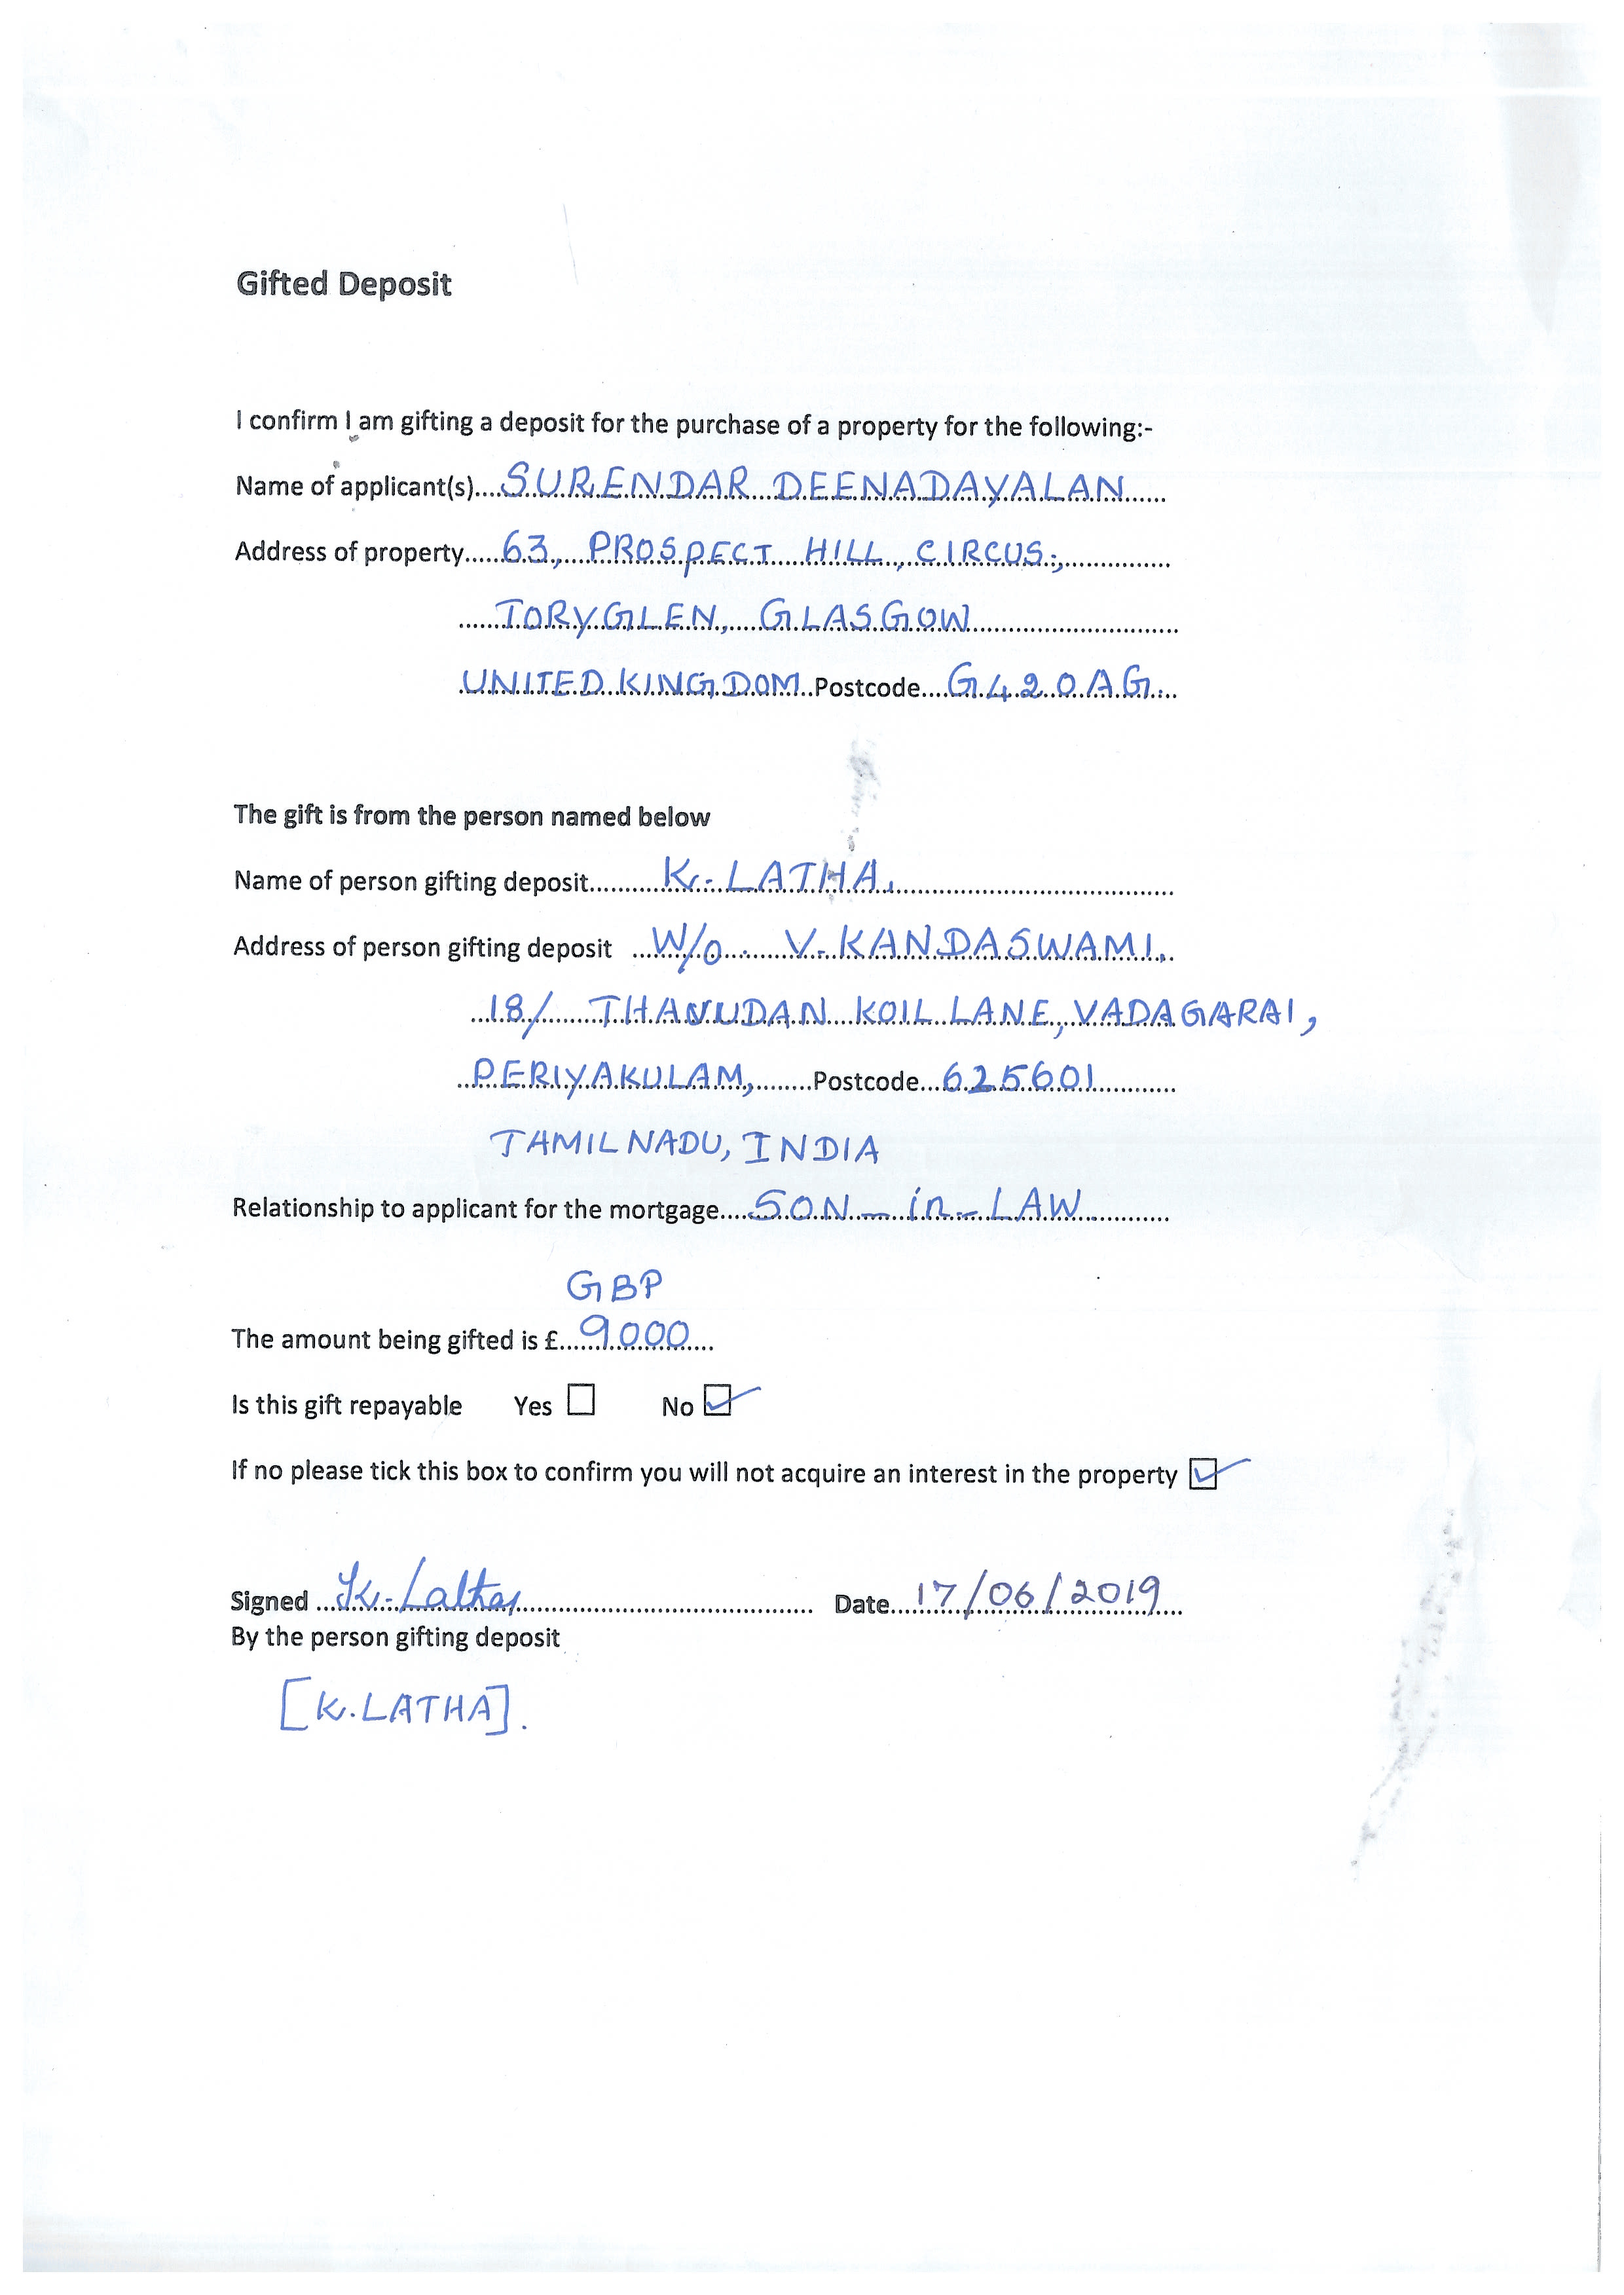 Gifted Deposit
I confirm I am gifting a deposit for the purchase of a property for the following:-
Name of applicant(s)....SURENDAR DEENADAYALAN......
Address of property.....63, PROSPECT HILL, CIRCUS.,...............
......TORYGLEN, GLASGOW..............................
UNITED KINGDOM..Postcode...G42 0AG...
The gift is from the person named below
Name of person gifting deposit..........K. LATHA.........................................
Address of person gifting deposit ...W/o......V. KANDASWAMI,.
...18/......THANUDAN KOIL LANE, VADAGARAI,
..PERIYAKULAM,........Postcode...625601............
TAMIL NADU, INDIA
Relationship to applicant for the mortgage....SON - in - LAW............
GBP
The amount being gifted is £...9000....
Is this gift repayable Yes ☐ No ☑
If no please tick this box to confirm you will not acquire an interest in the property ☑
Signed ...K. Latha.......................................... Date....17/06/2019...
By the person gifting deposit
[K. LATHA].